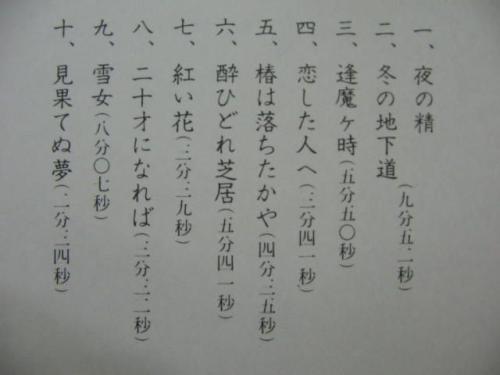 一、夜の精
二、冬の地下道
(九分五二秒)
三、逢魔ヶ時(五分五〇秒)
四、恋した人へ(三分四一秒)
五、椿は落ちたかや(四分二五秒)
六、酔ひどれ芝居(五分四一秒)
七、紅い花(三分三九秒)
八、二十才になれば
九、雪女(八分〇七秒)
十、見果てぬ夢